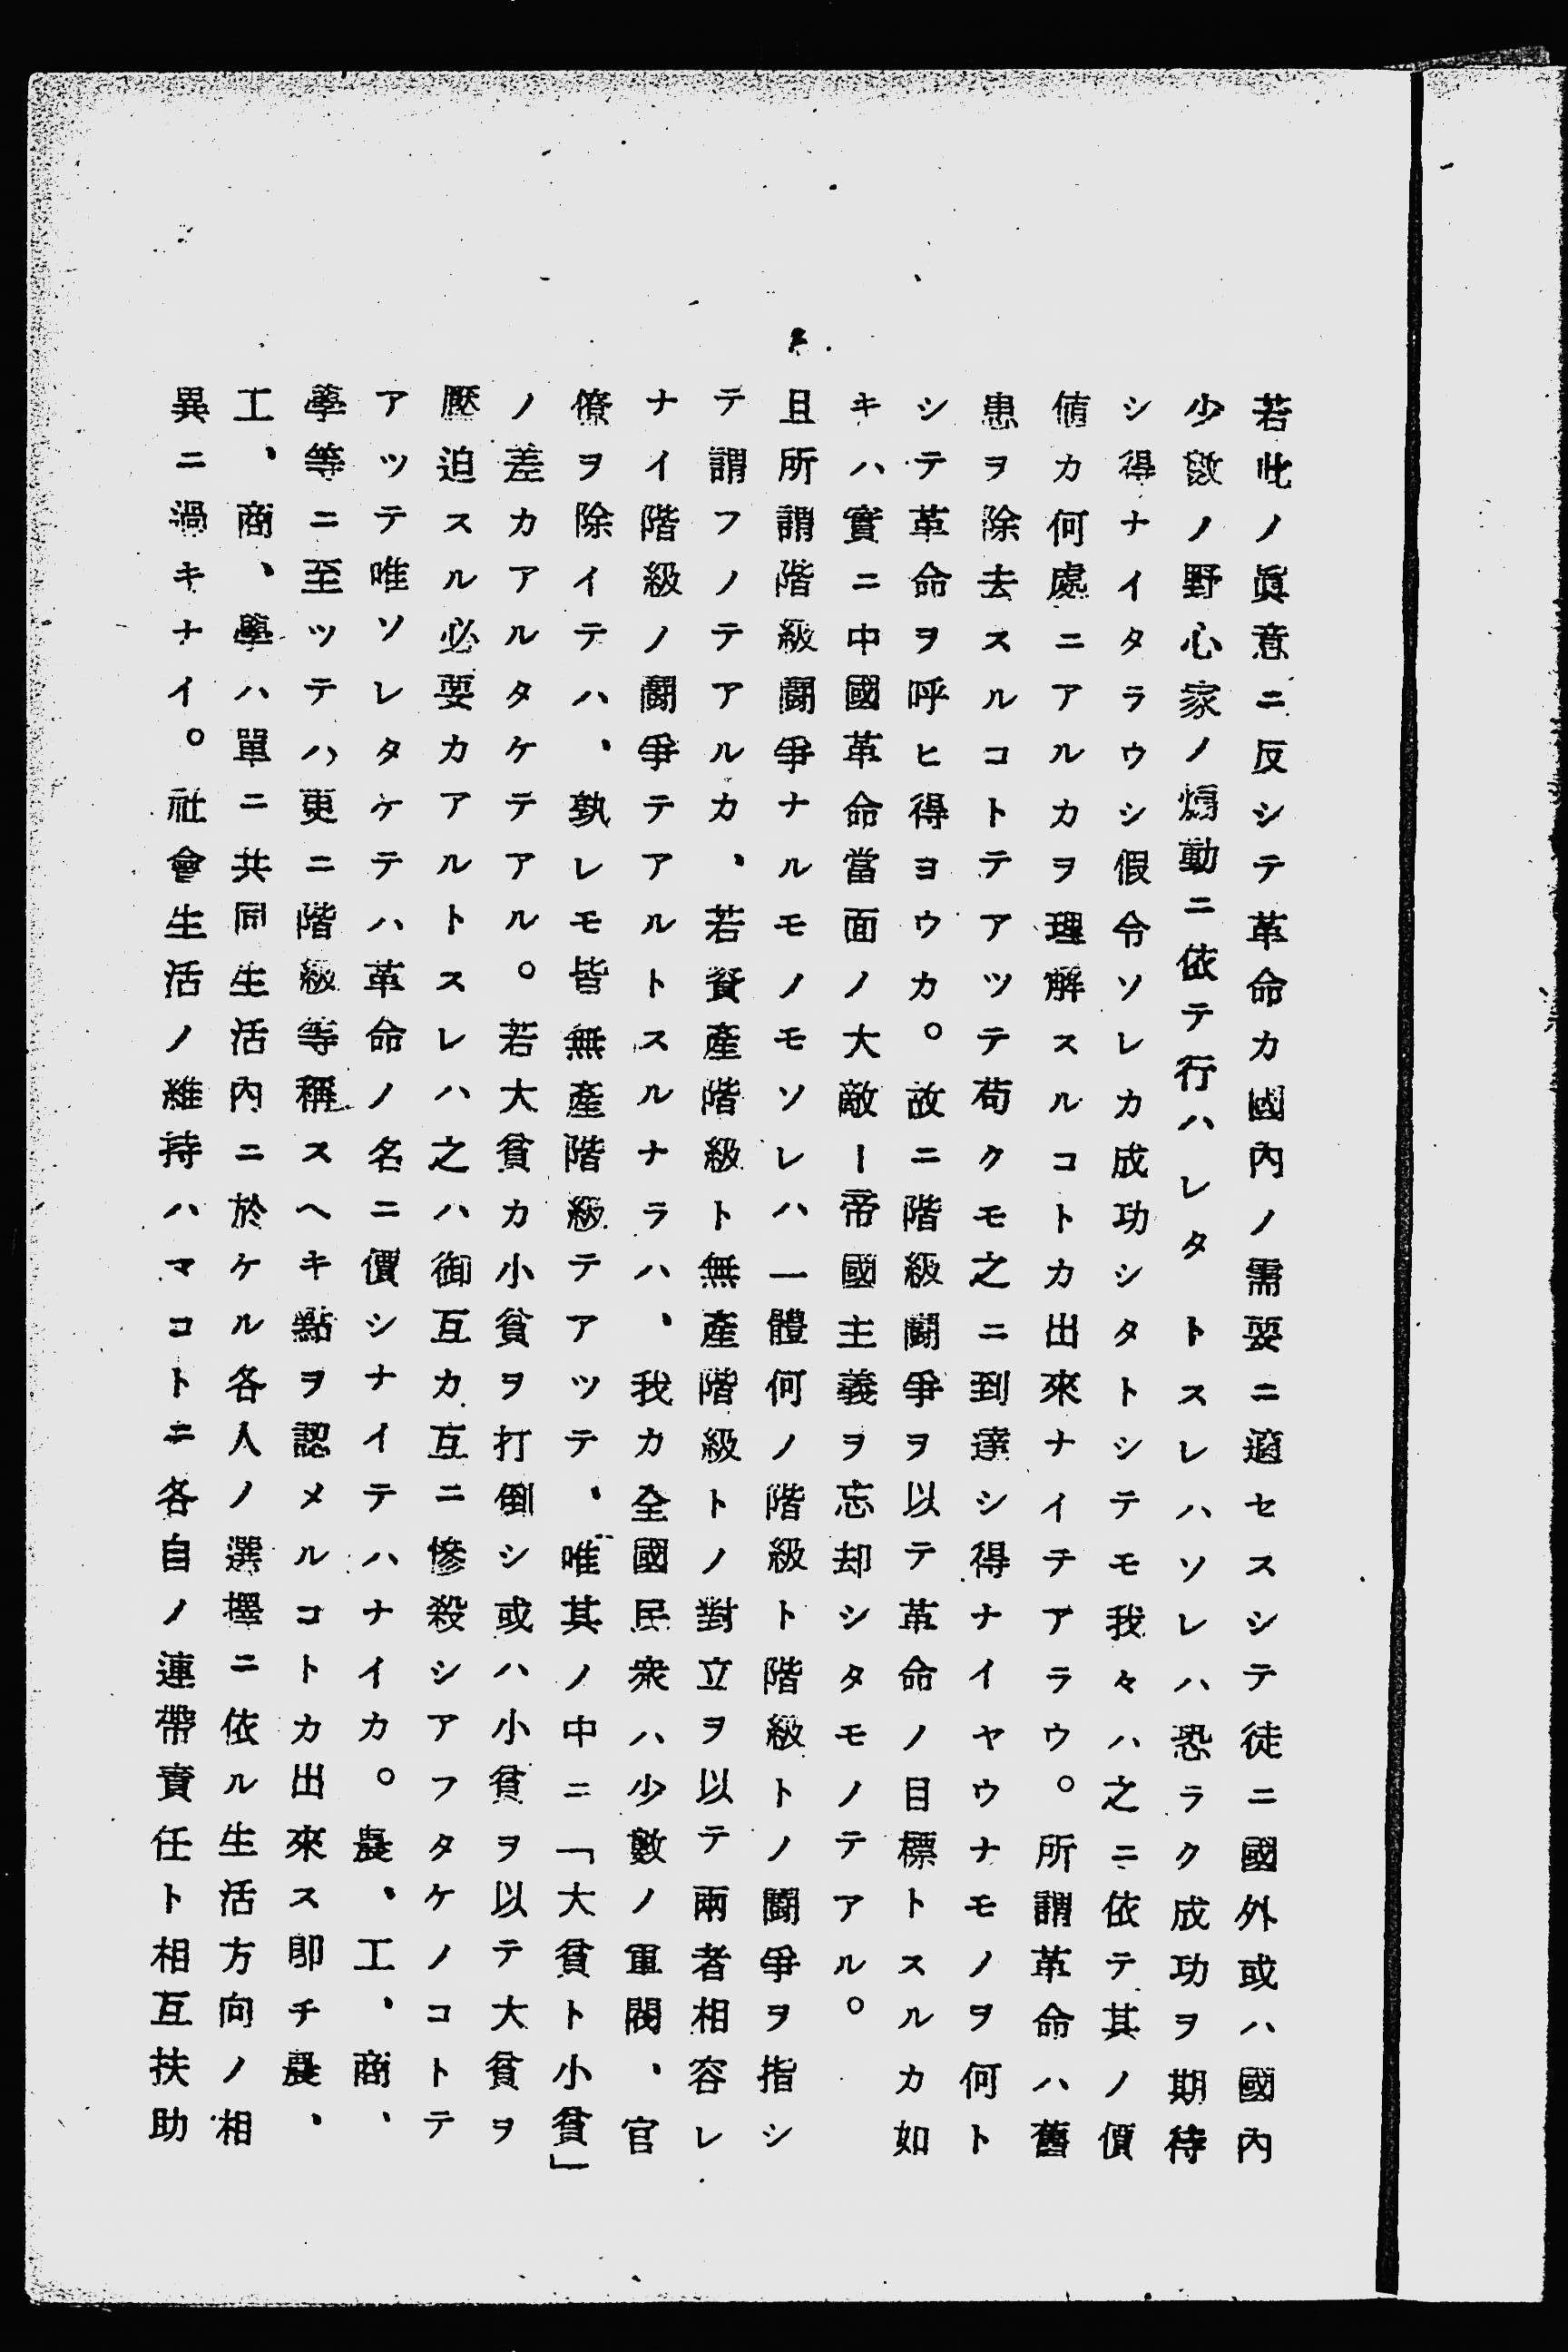 若此ノ眞意ニ反シテ革命カ國內ノ需要ニ適セスシテ徒ニ國外或ハ國內
少數ノ野心家ノ煽動ニ依テ行ハレタトスレハソレハ恐ラク成功ヲ期待
シ得ナイタラウシ假令ソレカ成功シタトシテモ我々ハ之ニ依テ其ノ價
値カ何處ニアルカヲ理解スルコトカ出來ナイテアラウ。所謂革命ハ舊
患ヲ除去スルコトテアツテ苟クモ之ニ到達シ得ナイヤウナモノヲ何ト
シテ革命ヲ呼ヒ得ヨウカ。故ニ階級鬪爭ヲ以テ革命ノ目標トスルカ如
キハ實ニ中國革命當面ノ大敵ー帝國主義ヲ忘却シタモノテアル。
且所謂階級鬪爭ナルモノモソレハ一體何ノ階級ト階級トノ鬪爭ヲ指シ
テ謂フノテアルカ、若資產階級ト無產階級トノ對立ヲ以テ兩者相容レ
ナイ階級ノ鬪爭テアルトスルナラハ、我カ全國民衆ハ少數ノ軍閥、官
僚ヲ除イテハ、孰レモ皆無產階級テアツテ、唯其ノ中ニ「大貧ト小貧」
ノ差カアルタケテアル。若大貧カ小貧ヲ打倒シ或ハ小貧ヲ以テ大貧ヲ
壓迫スル必要カアルトスレハ之ハ御互カ互ニ慘殺シアフタケノコトテ
アツテ唯ソレタケテハ革命ノ名ニ價シナイテハナイカ。農、工、商、
學等ニ至ツテハ更ニ階級等稱スヘキ點ヲ認メルコトカ出來ス卽チ農、
工、商、學ハ單ニ共同生活內ニ於ケル各人ノ選擇ニ依ル生活方向ノ相
異ニ過キナイ。社會生活ノ維持ハマコトニ各自ノ連帶責任ト相互扶助